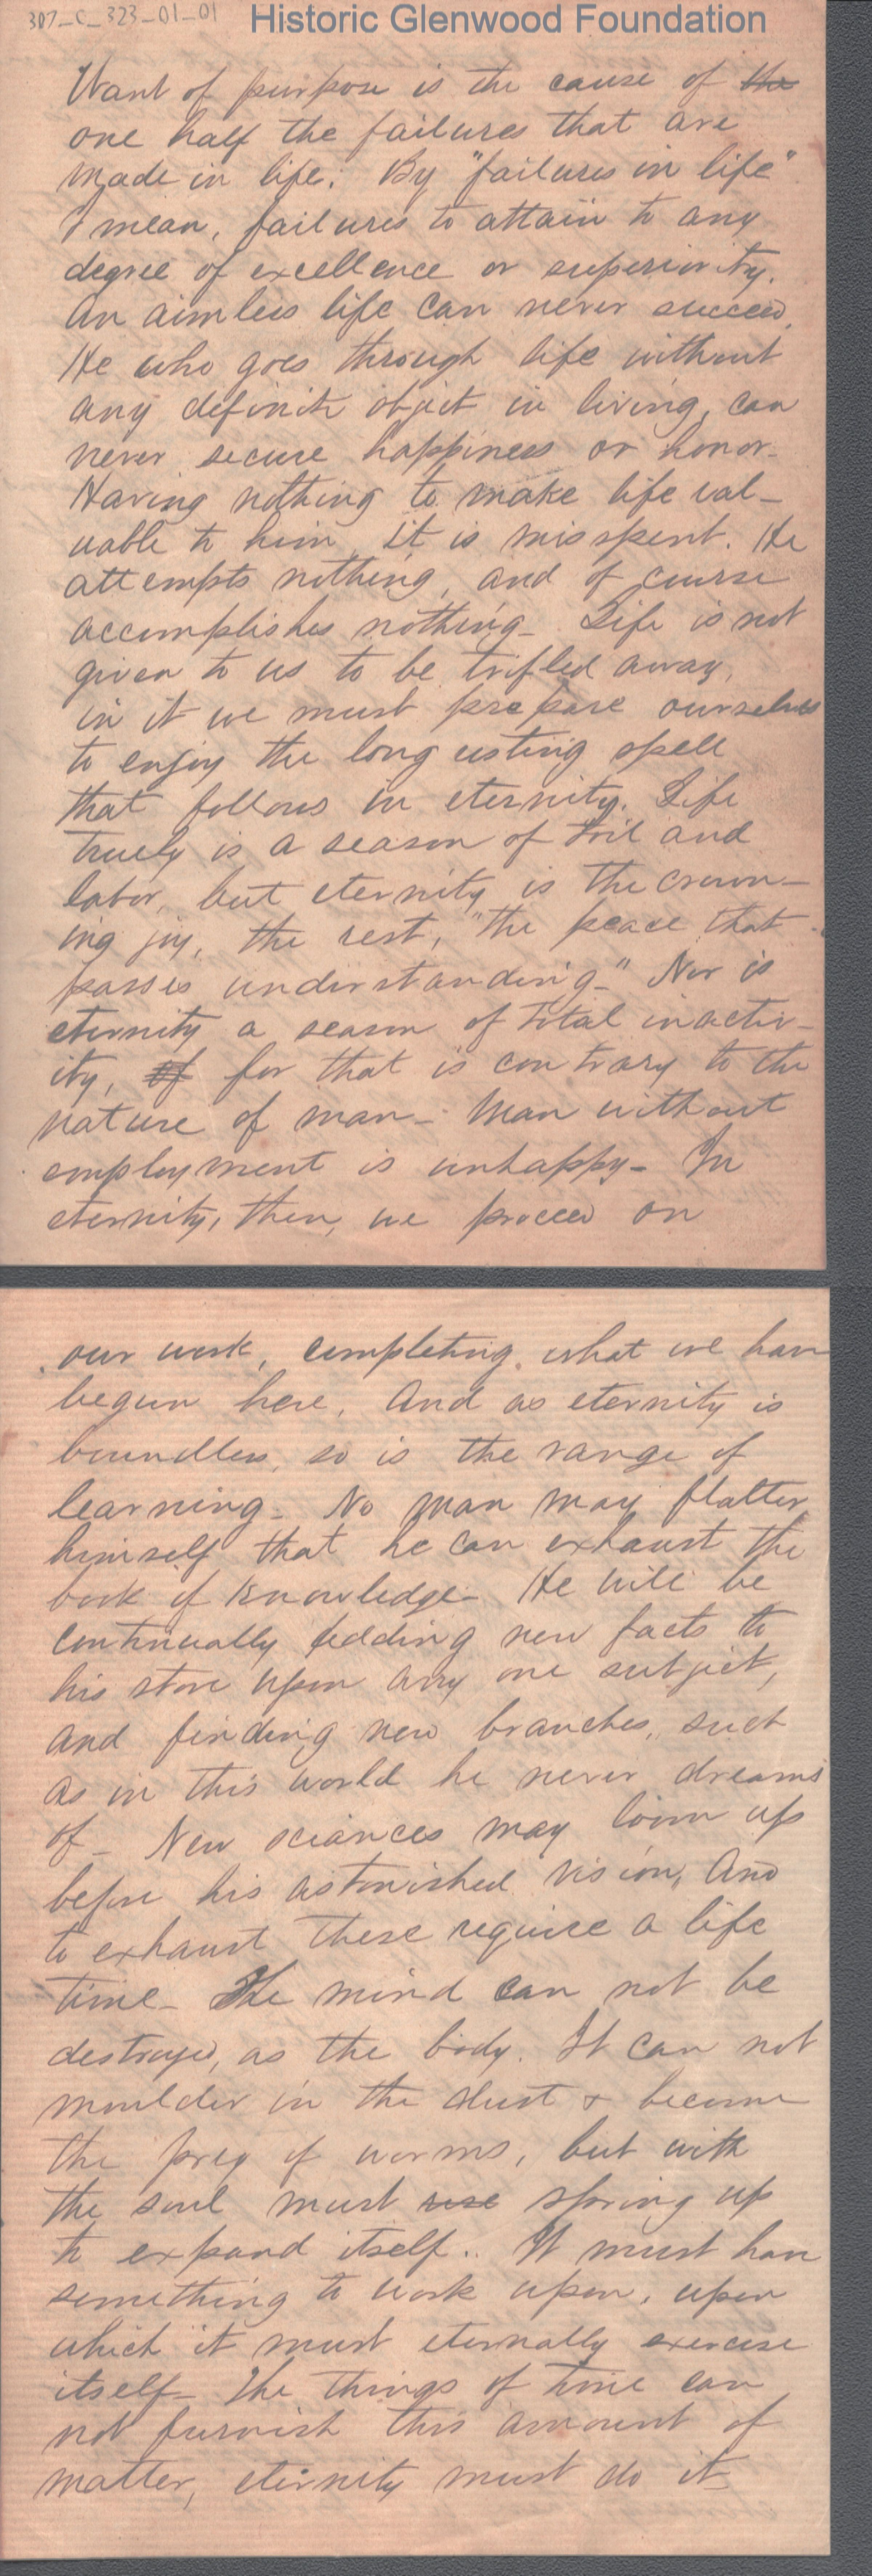 307_C_323-01-01
Historic Glenwood Foundation
Want of purpose is the cause of the
one half the failures that are
made in life. By "failures in life"
I mean, failures to attain to any
degree of excellence or superiority.
An aimless life can never succeed.
He who goes through life without
any definite object in living, can
never secure happiness or honor-
Having nothing to make life val-
uable to him it is misspent. He
attempts nothing, and of course
accomplishes nothing- Life is not
given to us to be trifled away,
in it we must prepare ourselves
to enjoy the long spell
that follows in eternity. Life
truely is a season of toil and
labor, but eternity is the crown-
ing joy, the rest, "the peace that
passes understanding-" Nor is
eternity a season of total inactiv-
ity, of for that is contrary to the
nature of man- Man without
employment is unhappy- In
eternity, then, we proceed on
our work, completing what we have
begun here. And as eternity is
boundless, so is the range of
learning- No man may flatter
himself that he can exhaust the
book of knowledge- He will be
continually adding new facts to
his store upon any one subject,
and finding new branches, such
as in this world he never dreams
of- New sciances may loom up
before his astonished vision, And
to exhaust these require a life
time- The mind can not be
destroyed, as the body. It can not
moulder in the dust & become
the prey of worms, but with
the soul must rise spring up
to expand itself.. It must have
something to work upon, upon
which it must eternally exercise
itself- The things of time can
not furnish this amount of
matter, eternity must do it-